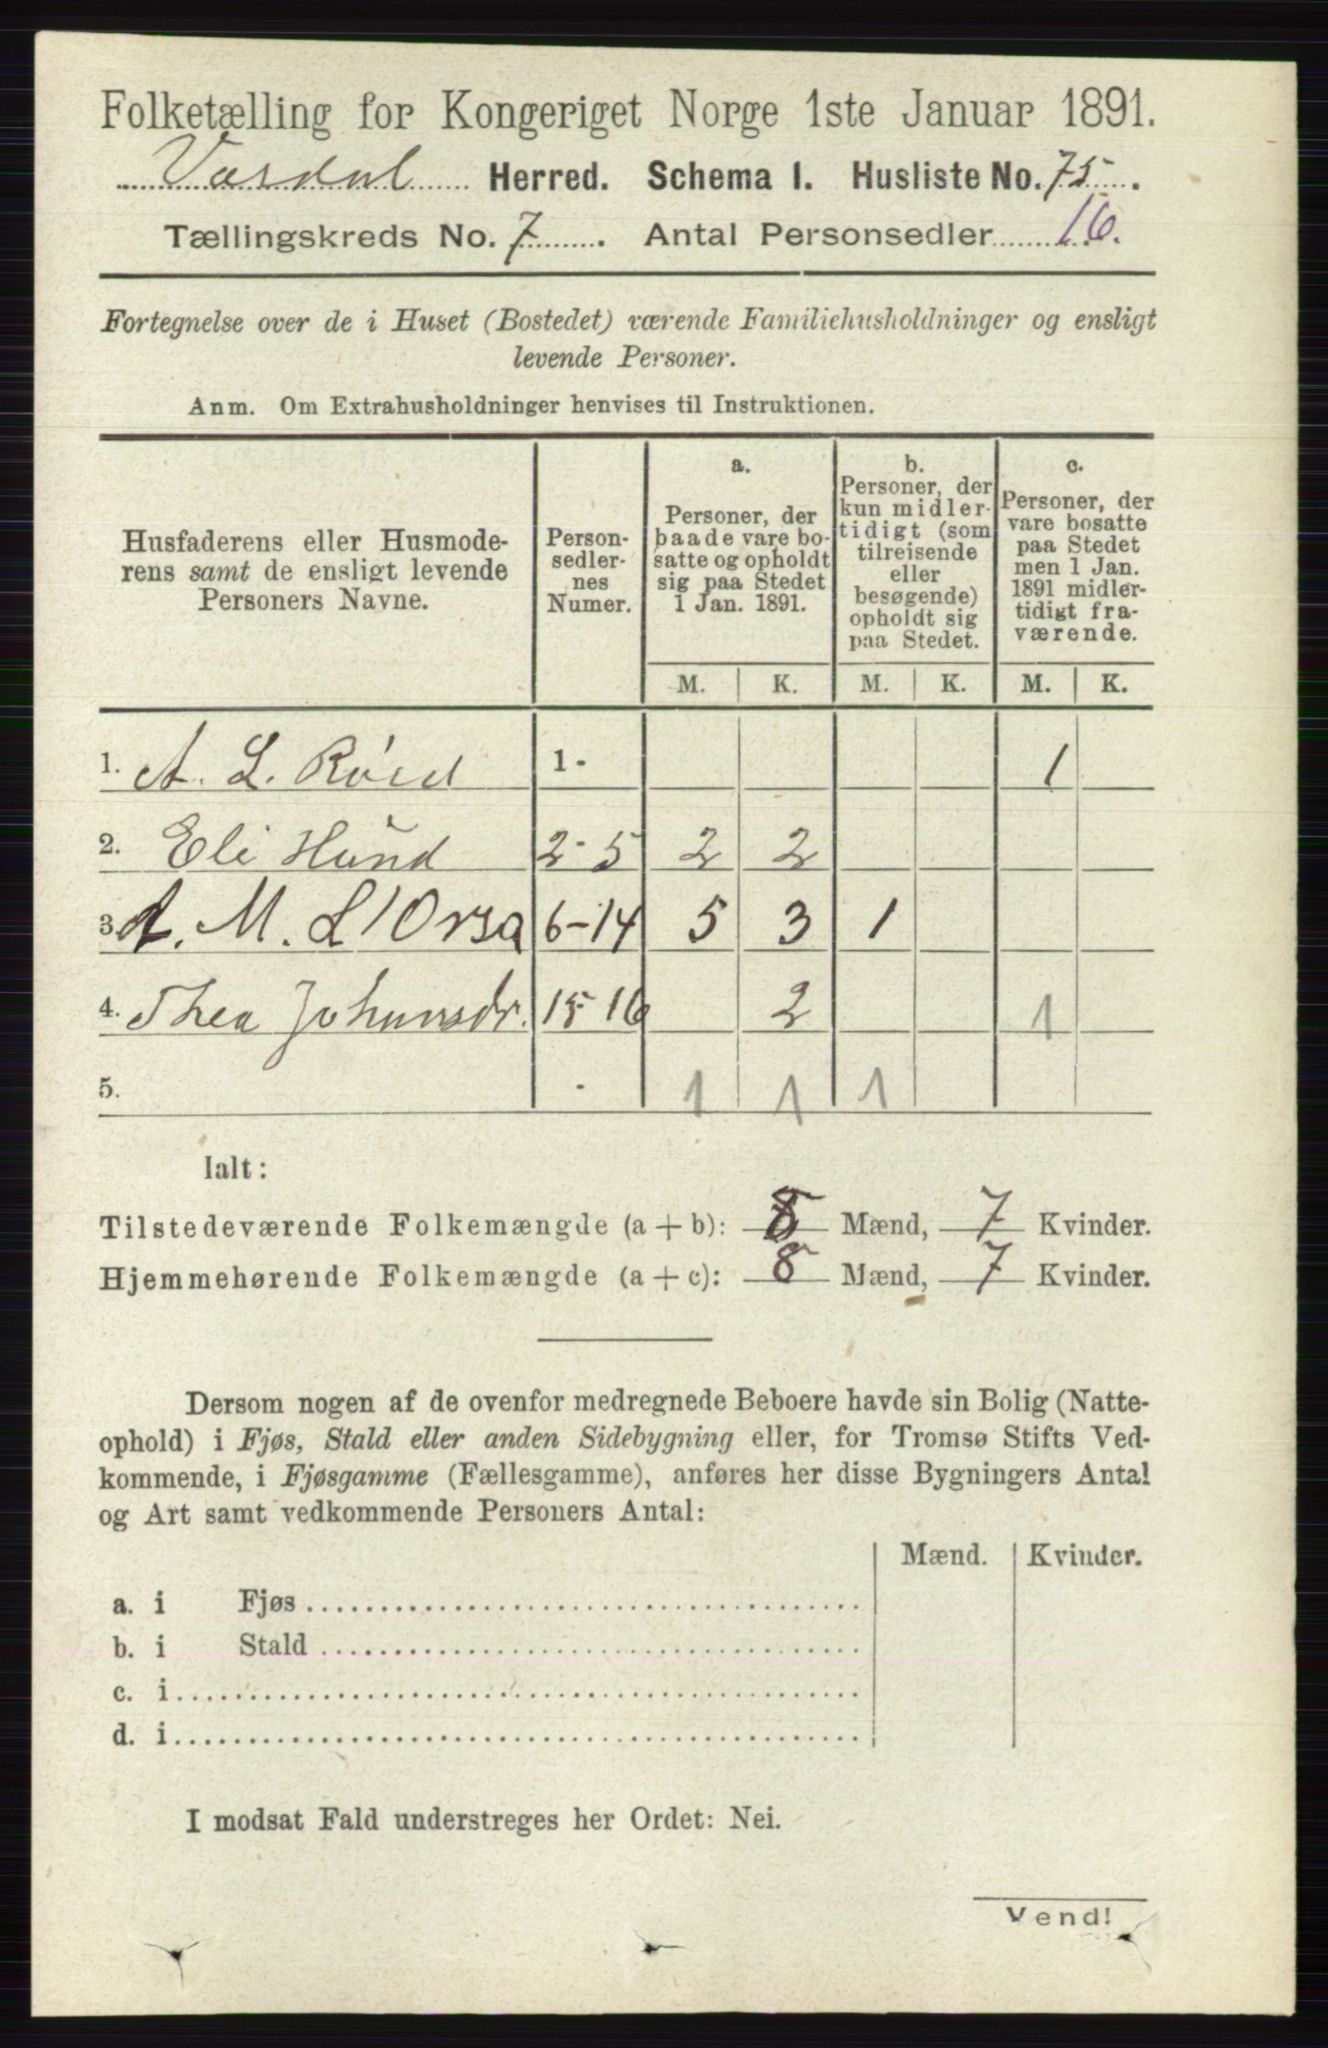 Folketælling for Kongeriget Norge 1ste Januar 1891.
Vardal Herred. Schema I. Husliste No. 75.
Tællingskreds No. 7. Antal Personsedler 16.
Fortegnelse over de i Huset (Bostedet) værende Familiehusholdninger og ensligt
levende Personer.
Anm. Om Extrahusholdninger henvises til Instruktionen.
Husfaderens eller Husmode-
rens samt de ensligt levende
Personers Navne.
Person-
sedler-
nes
Numer.
a.
Personer, der
baade vare bo-
satte og opholdt
sig paa Stedet
1 Jan. 1891.
b.
Personer, der
kun midler-
tidigt (som
tilreisende
eller
besøgende)
opholdt sig
paa Stedet.
c.
Personer, der
vare bosatte
paa Stedet
men 1 Jan.
1891 midler-
tidigt fra-
værende.
M. K. M. K. M. K.
1. A. L. 1 - 1
2. Eli Hund 2-5 2 2
3. A. M. L'Orsa 6-14 5 3 1
4. Thea Johansdr. 15 16 2 1
5. - 1 1 1
Ialt:
Tilstedeværende Folkemængde (a + b): 8 Mænd, 7 Kvinder.
Hjemmehørende Folkemængde (a + c): 8 Mænd, 7 Kvinder.
Dersom nogen af de ovenfor medregnede Beboere havde sin Bolig (Natte-
ophold) i Fjøs, Stald eller anden Sidebygning eller, for Tromsø Stifts Ved-
kommende, i Fjøsgamme (Fællesgamme), anføres her disse Bygningers Antal
og Art samt vedkommende Personers Antal:
Mænd. Kvinder.
a. i Fjøs
b. i Stald
c. i
d. i
I modsat Fald understreges her Ordet: Nei.
Vend!